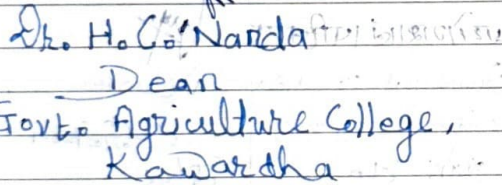 Dr. H. C. Nanda
Dean
Govt. Agriculture College,
Kawardha